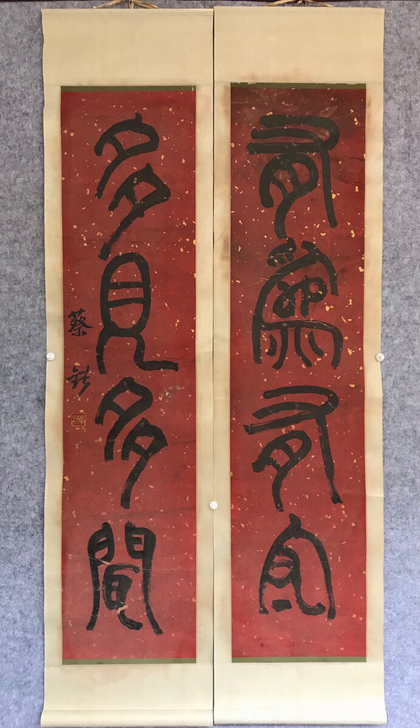 有為有守
多見多聞
蔡